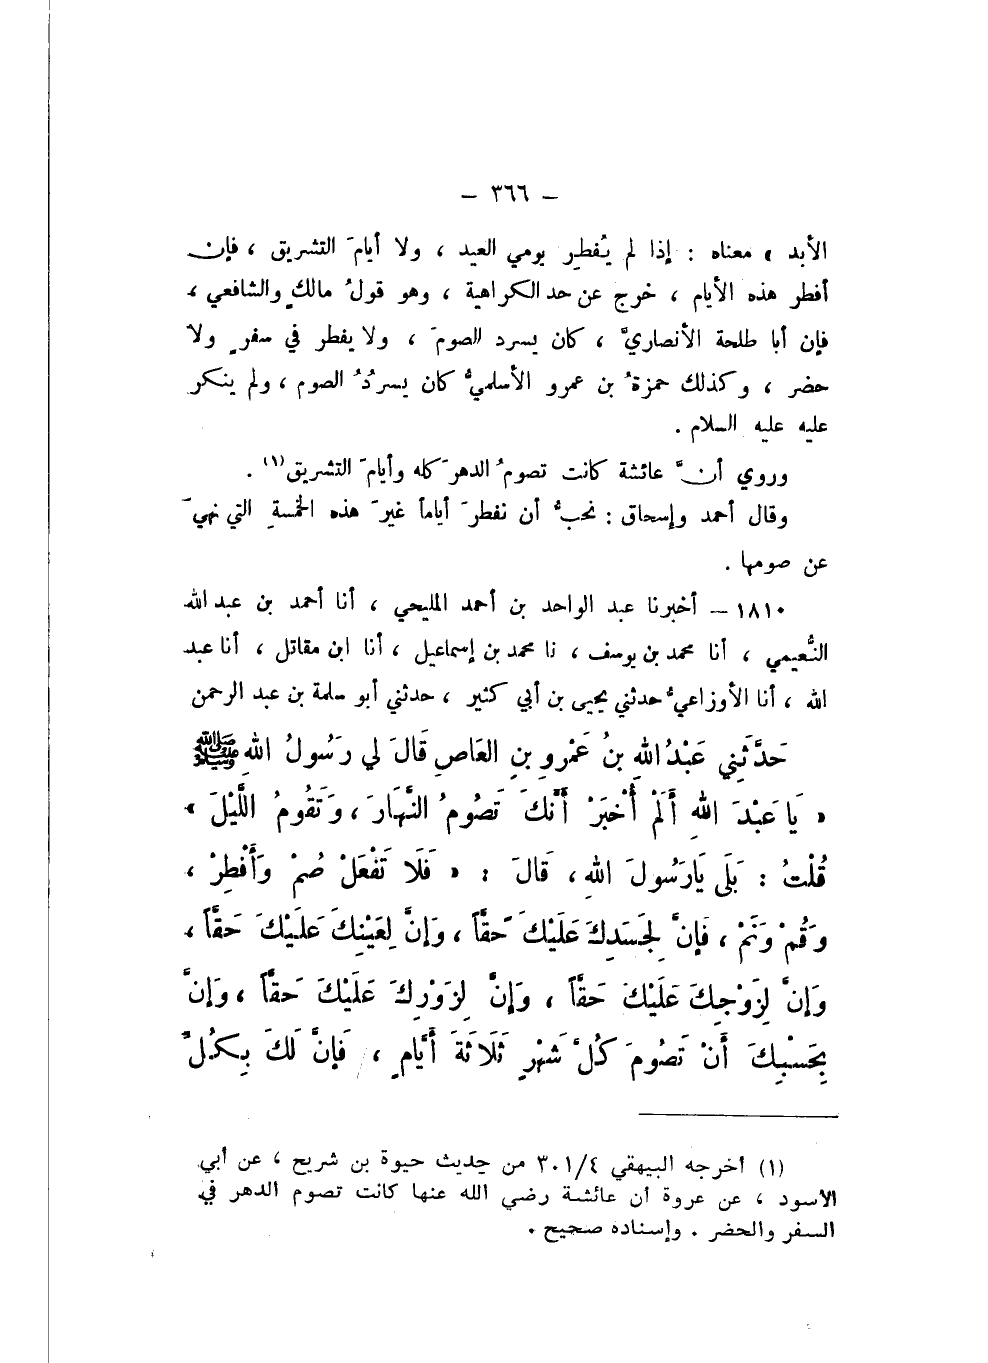 – ٣٦٦ –
الأبد » معناه : إذا لم يُفطِر يومي العيد ، ولا أيامَ التشريق ، فإن
أفطر هذه الأيام ، خرج عن حد الكراهية ، وهو قولُ مالكٍ والشافعي ،
فإن أبا طلحة الأنصاريَّ ، كان يسرد الصومَ ، ولا يفطر في سفرٍ ولا
حضر ، وكذلك حمزةُ بن عمرو الأسلميُّ كان يسرُدُ الصوم ، ولم ينكر
عليه عليه السلام .
وروي أنَّ عائشة كانت تصومُ الدهرَ كله وأيامَ التشريق(١) .
وقال أحمد وإسحاق : نحبُّ أن نفطرَ أياماً غيرَ هذه الخمسةِ التي نهيَ
عن صومها .
١٨١٠ – أخبرنا عبد الواحد بن أحمد المليحي ، أنا أحمد بن عبد الله
النُّعيمي ، أنا محمد بن يوسف ، نا محمد بن إسماعيل ، أنا ابن مقاتل ، أنا عبد
الله ، أنا الأوزاعيُّ حدثني يحيى بن أبي كثير ، حدثني أبو سلمة بن عبد الرحمن
حَدَّثَنِي عَبْدُ اللهِ بنُ عَمْرِو بنِ العَاصِ قَالَ لي رَسُولُ اللهِ ﷺ
« يَا عَبْدَ اللهِ أَلَمْ أُخْبَرْ أَنَّكَ تَصُومُ النَّهَارَ ، وَتَقُومُ اللَّيْلَ »
قُلْتُ : بَلَى يَارَسُولَ اللهِ ، قَالَ : « فَلَا تَفْعَلْ صُمْ وَأَفْطِرْ ،
وَقُمْ وَنَمْ ، فَإِنَّ لِجَسَدِكَ عَلَيْكَ حَقَّاً ، وَإِنَّ لِعَيْنِكَ عَلَيْكَ حَقَّاً ،
وَإِنَّ لِزَوْجِكَ عَلَيْكَ حَقَّاً ، وَإِنَّ لِزَوْرِكَ عَلَيْكَ حَقَّاً ، وَإِنَّ
بِحَسْبِكَ أَنْ تَصُومَ كُلَّ شَهْرٍ ثَلَاثَةَ أَيَّامٍ ، فَإِنَّ لَكَ بِكُلِّ
(١) أخرجه البيهقي ٣٠١/٤ من حديث حيوة بن شريح ، عن أبي
الأسود ، عن عروة أن عائشة رضي الله عنها كانت تصوم الدهر في
السفر والحضر . وإسناده صحيح .